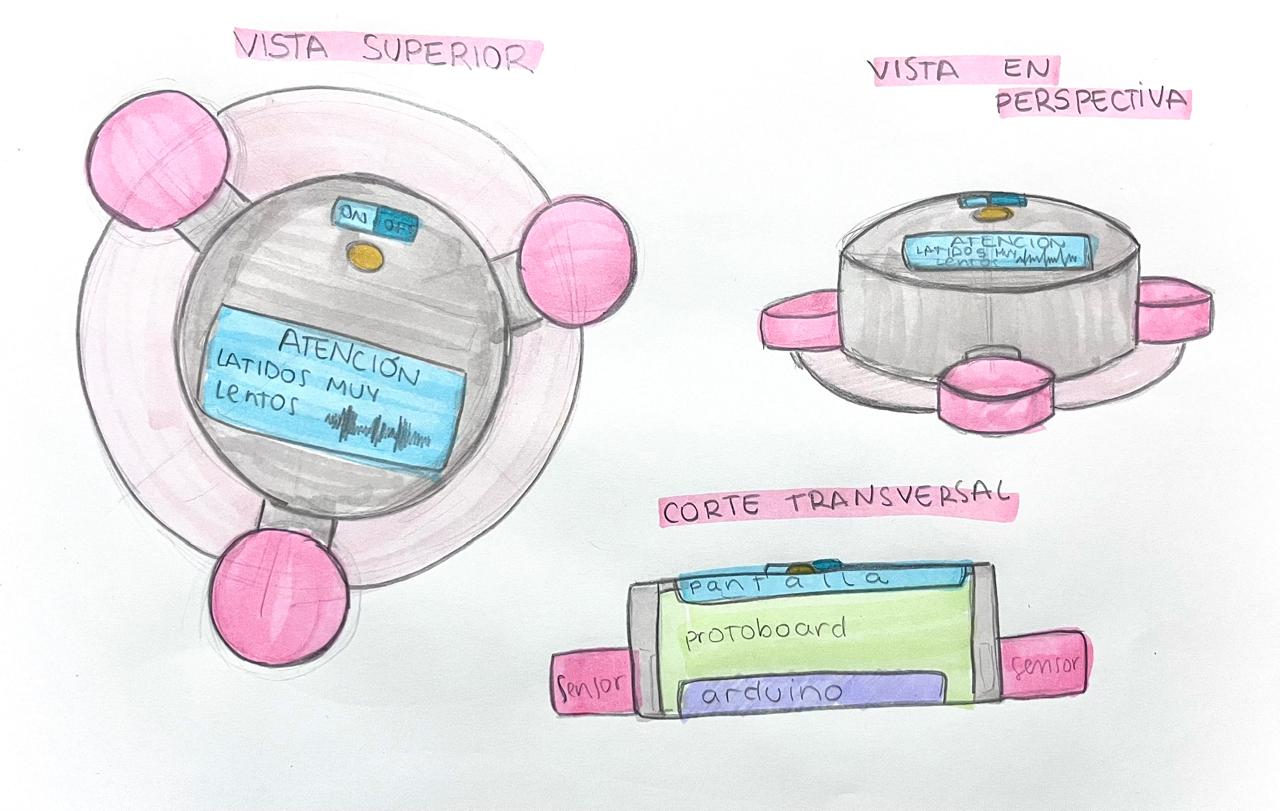 VISTA SUPERIOR
ON OFF
ATENCIÓN
LATIDOS MUY
Lentos
VISTA EN
PERSPECTIVA
ATENCION
LATIDOS MUY
Lentos
CORTE TRANSVERSAL
pantalla
protoboard
sensor
arduino
sensor